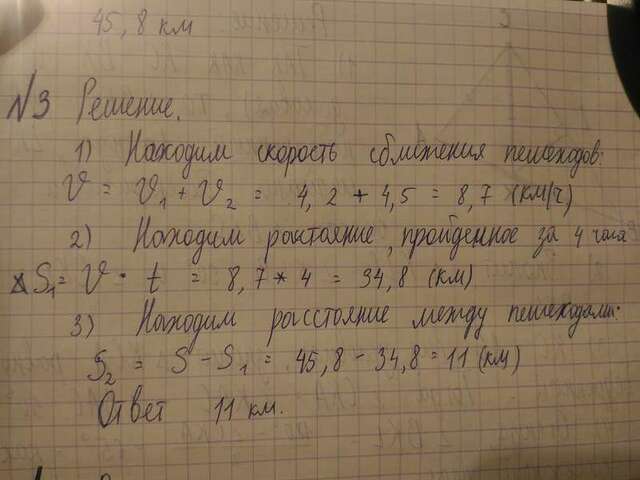 45,8 км
№3 Решение.
1) Находим скорость сближения пешеходов:
V = V₁ + V₂ = 4,2 + 4,5 = 8,7 (км/ч)
2) Находим растояние, пройденное за 4 часа
S₁ = V · t = 8,7 * 4 = 34,8 (км)
3) Находим расстояние между пешеходами:
S₂ = S - S₁ = 45,8 - 34,8 = 11 (км)
Ответ 11 км.